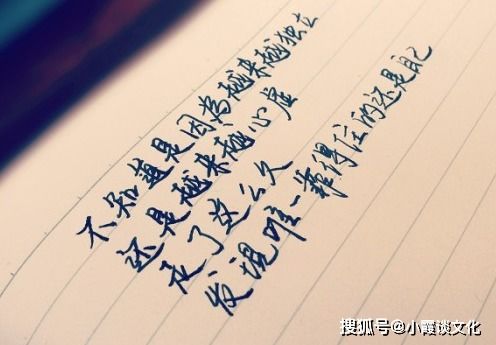 不知道是因为越来越独立
还是越来越心虚
走了这么久
发现唯一靠得住的还是自己
搜狐号@小霞谈文化